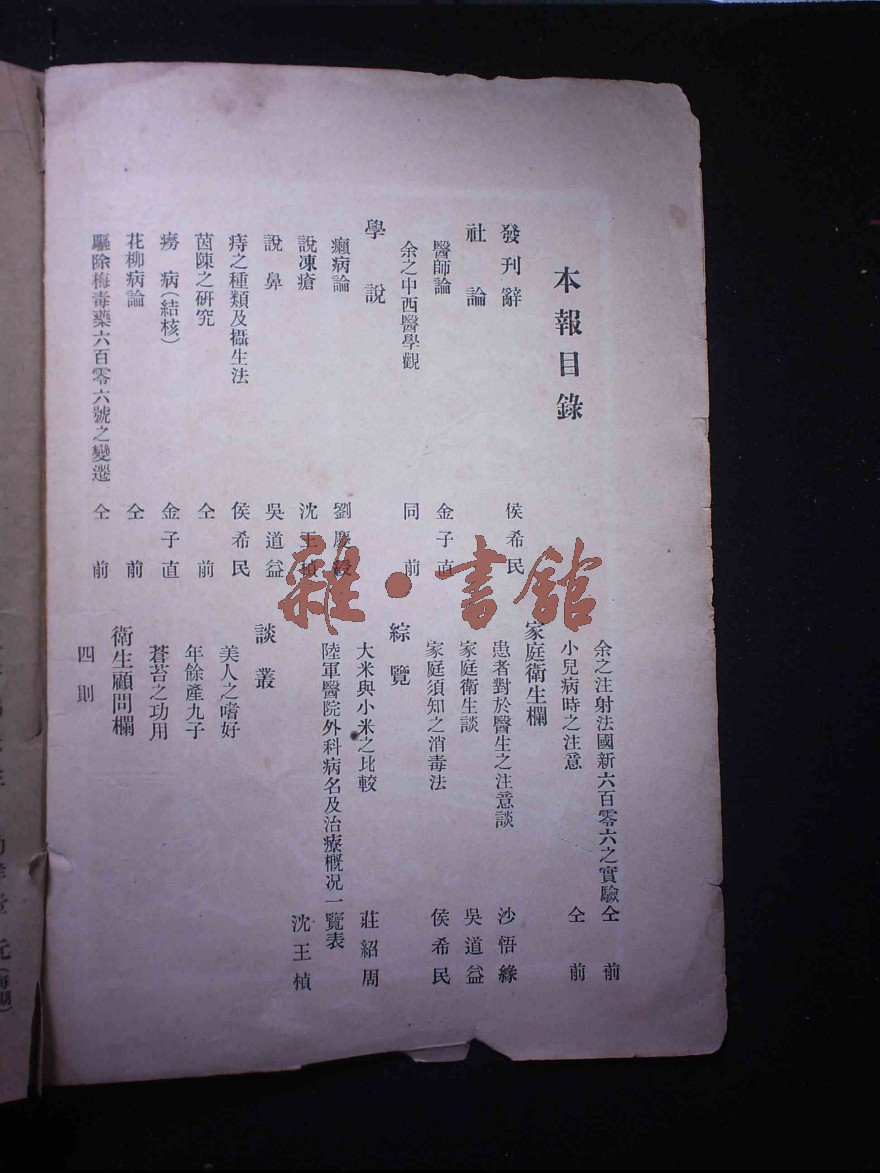 本報目錄
發刊辭 侯希民
社論
醫師論 金子直
余之中西醫學觀 同前
學說
癩病論 劉慶綬
說凍瘡 沈王楨
說鼻 吳道益
痔之種類及攝生法 侯希民
茵陳之研究 仝前
癆病(結核) 金子直
花柳病論 仝前
驅除梅毒藥六百零六號之變遷 仝前
余之注射法國新六百零六之實驗 仝前
小兒病時之注意 仝前
家庭衛生欄
患者對於醫生之注意談 沙悟緣
家庭衛生談 吳道益
家庭須知之消毒法 侯希民
綜覽
大米與小米之比較 莊紹周
陸軍醫院外科病名及治療概況一覽表
沈王楨
談叢
美人之嗜好
年餘產九子
蒼苔之功用
衛生顧問欄
四則
雜·書館